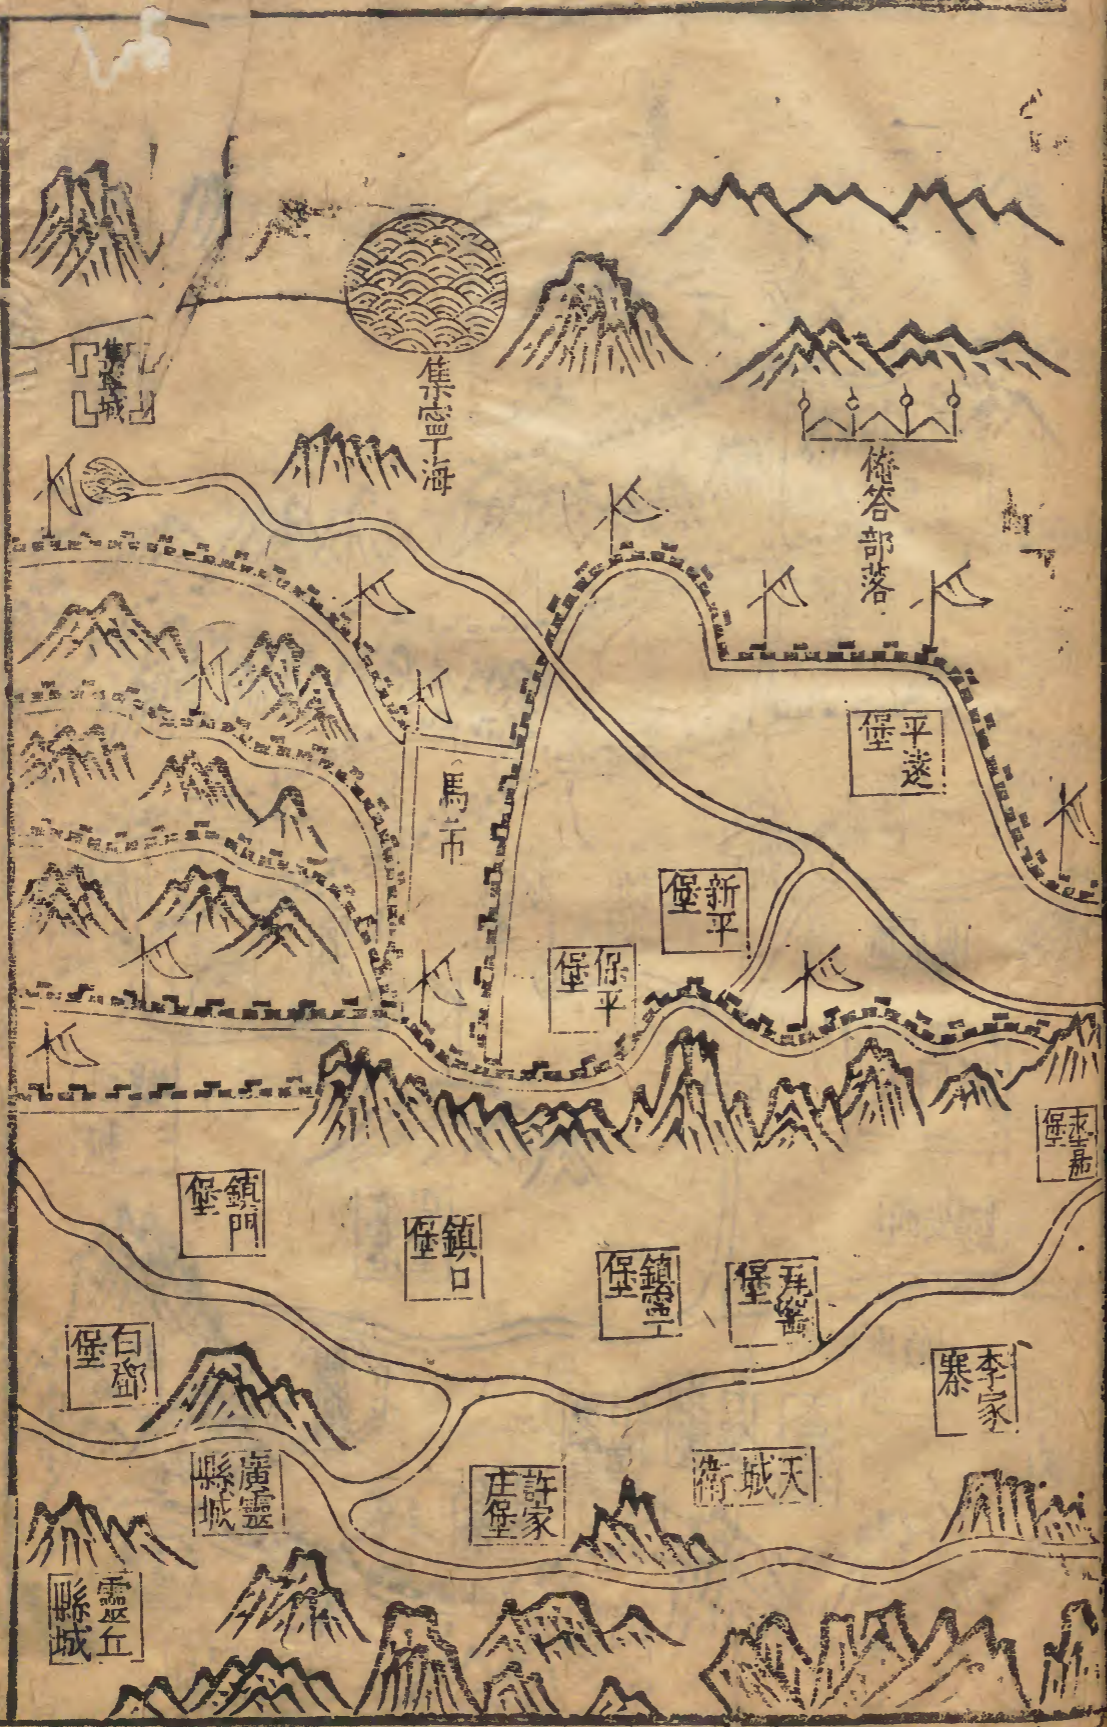 集寧海
集寧城
俺答部落
平遠堡
馬市
新平堡
保平堡
永嘉堡
鎮門堡
鎮口堡
鎮寧堡
瓦窰堡
白鄧堡
李家寨
廣靈縣城
許家庄堡
天城衛
靈丘縣城